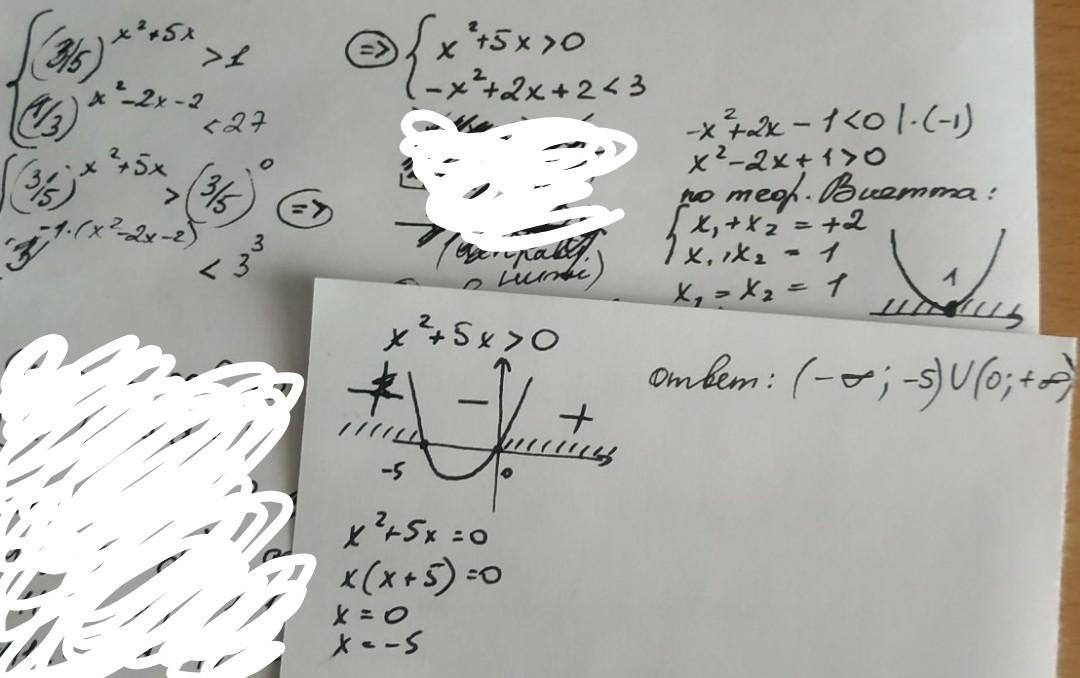 {(3/5)^(x²+5x) > 1
(1/3)^(x²-2x-2) < 27
{(3/5)^(x²+5x) > (3/5)^0 =>
3^(-1·(x²-2x-2)) < 3^3
=> {x²+5x>0
-x²+2x+2<3
-x²+2x-1<0 |·(-1)
x²-2x+1>0
по теор. Виетта:
{x₁+x₂ = +2
x₁·x₂ = 1
x₁ = x₂ = 1
1
x²+5x>0
+ - +
-5 0
x²+5x=0
x(x+5)=0
x=0
x=-5
ответ: (-∞; -5)U(0; +∞)